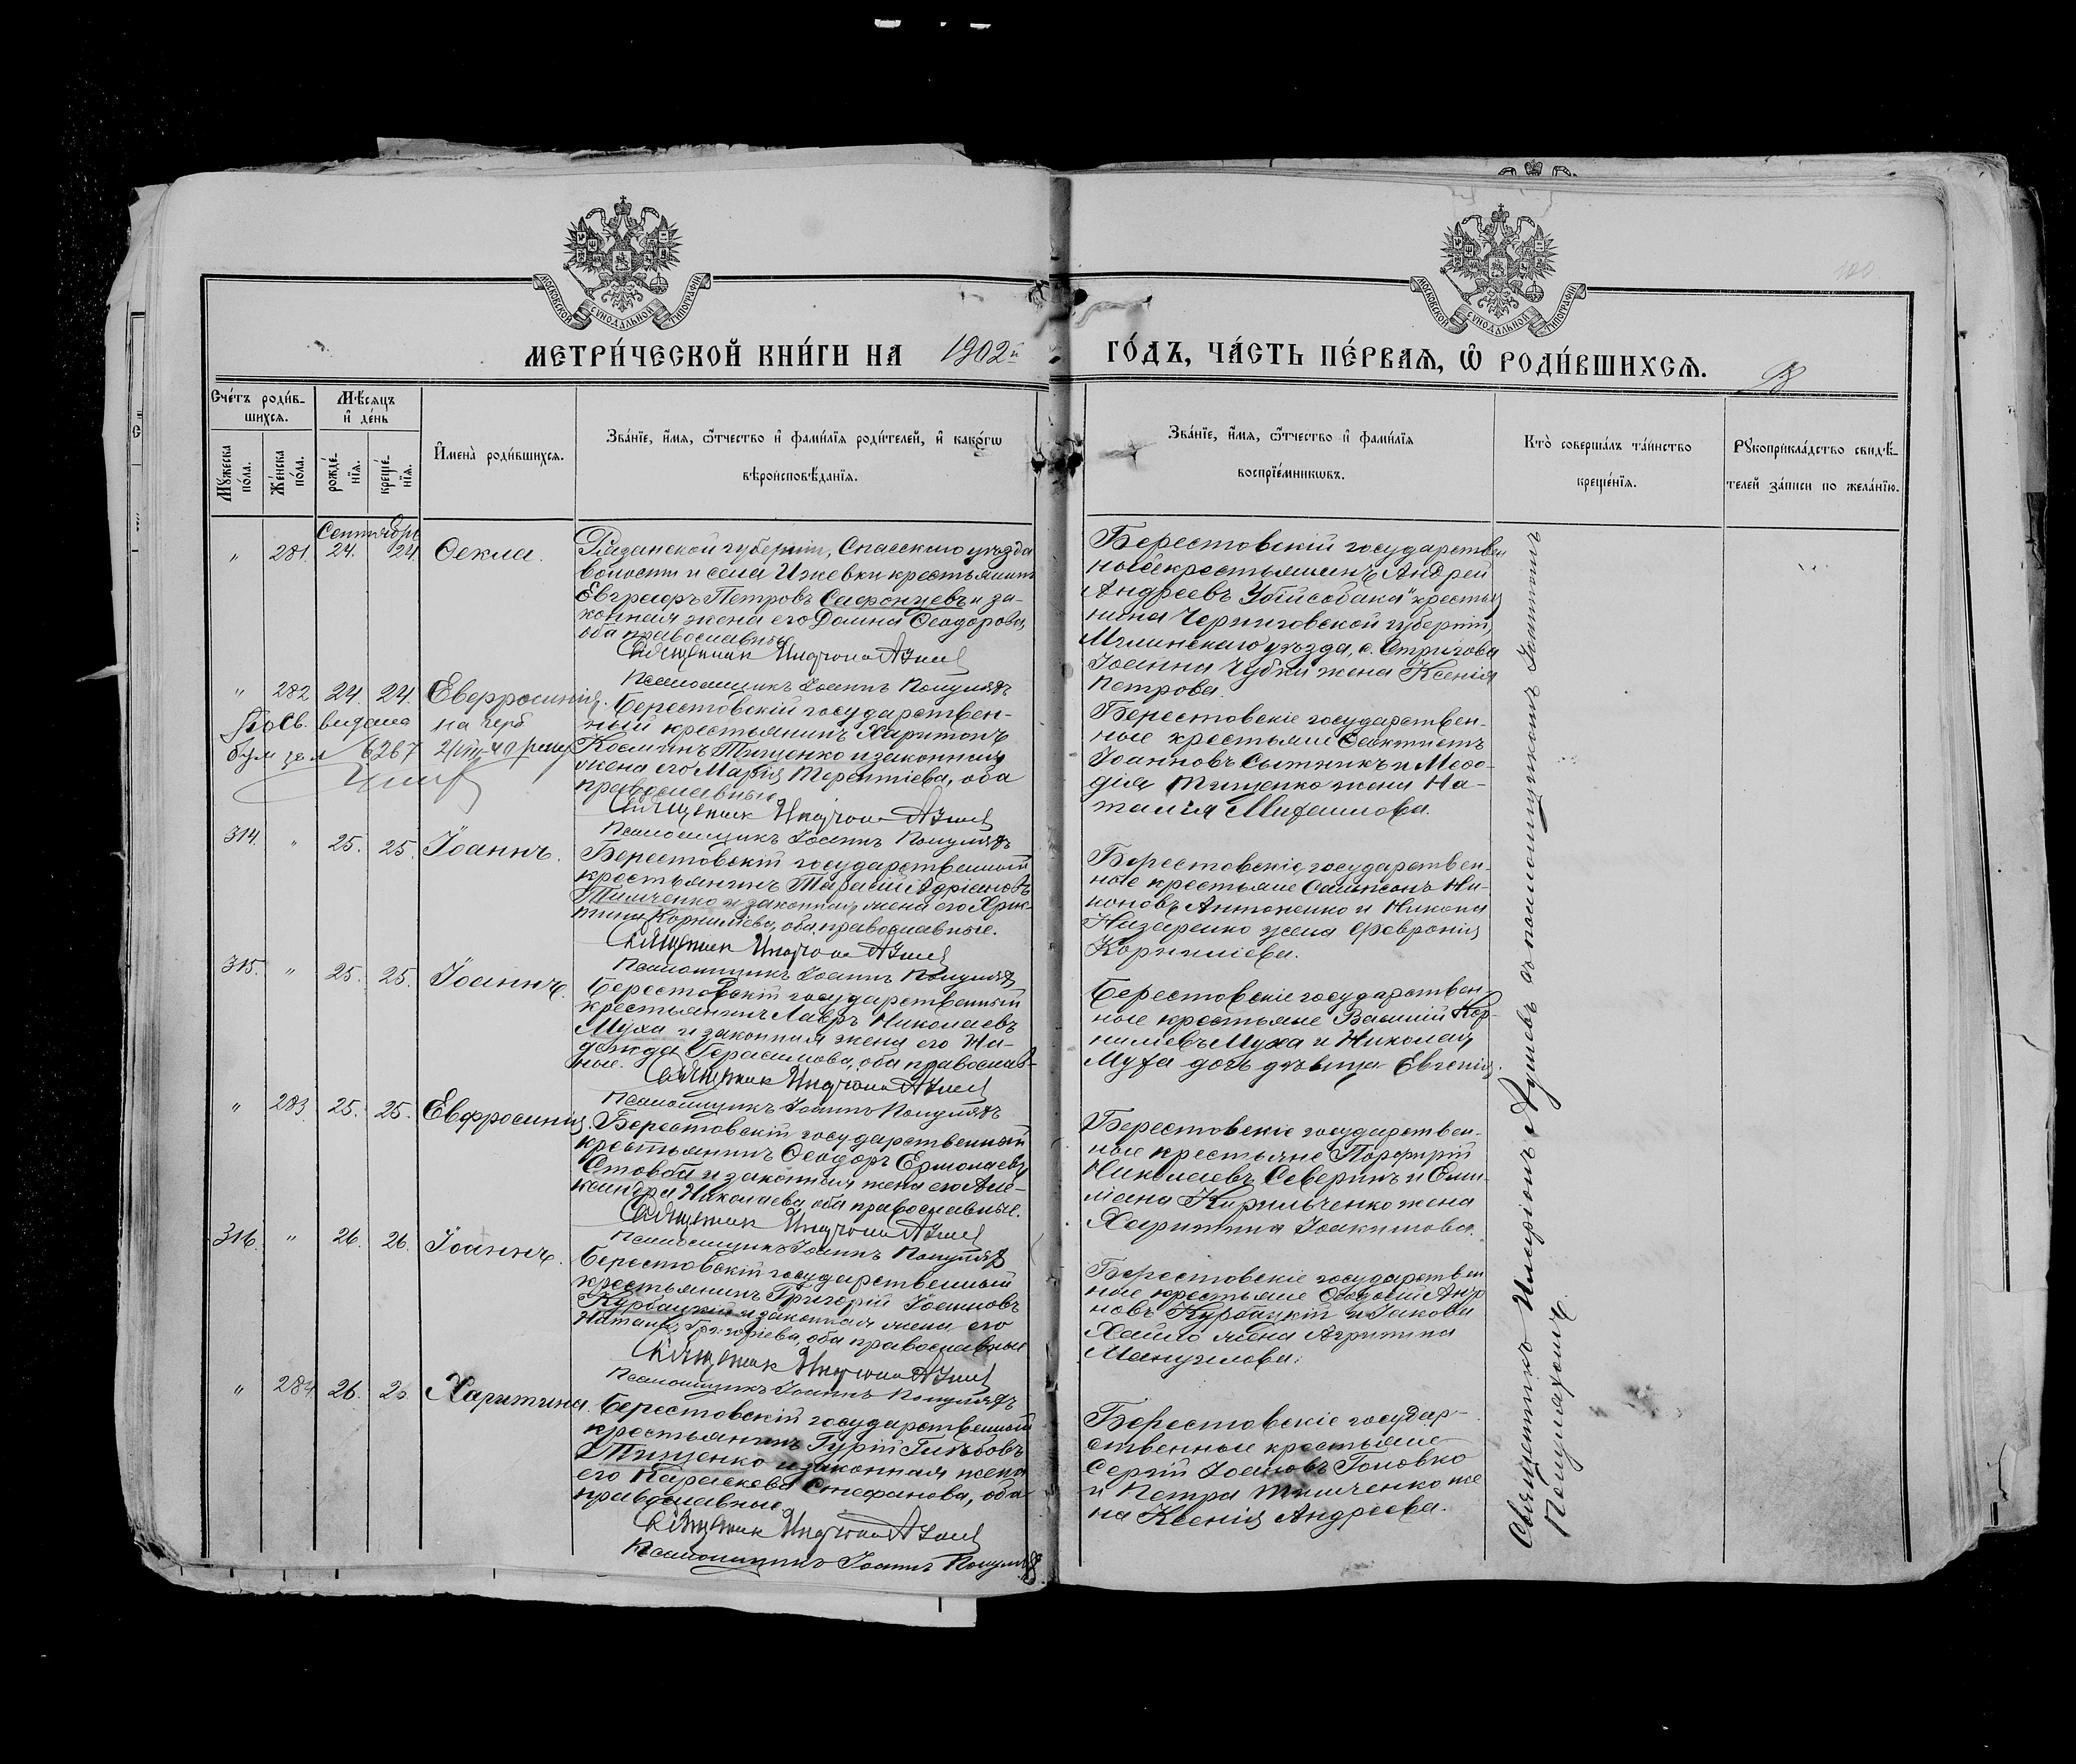 МОСКОВСКОЙ СѴНОДАЛЬНОЙ ТИПОГРАФІИ
МОСКОВСКОЙ СѴНОДАЛЬНОЙ ТИПОГРАФІИ
100
МЕТРИ́ЧЕСКОЙ КНИ́ГИ НА 1902й
ГО́ДЪ, ЧА́СТЬ ПЕ́РВАЯ, Ѡ҆ РОДИ́ВШИХСЯ.
Сче́тъ роди́в-
шихся.
Мѣ́сяцъ
и҆ де́нь
Мꙋ́жеска по́ла.
Же́нска по́ла.
рожде́-
нїя.
креще́-
нїя.
И҆мена̀ роди́вшихся.
Зва́нїе, и҆́мя, ѻ҆́тчество и҆ фами́лїя роди́телей, и҆ како́гѡ
вѣроисповѣ́данїя.
Зва́нїе, и҆́мя, ѻ҆́тчество и҆ фами́лїя
воспрїе́мникѡвъ.
Кто̀ соверша́лъ та́инство
креще́нїя.
Рꙋкоприкла́дство свидѣ́-
телей за́писи по жела́нїю.
Сентябрь
" 281. 24. 24. Ѳекла.
Рязанской губерніи, Спасскаго уѣзда
волости и села Ижевки крестьянинъ
Евграфъ Петровъ Сафонцевъ и за-
конная жена его Домна Ѳеодорова,
оба православные
Священникъ Иларіонъ
Псаломщикъ Іоаннъ
Берестовскій государствен
ный крестьянинъ Андрей
Андреевъ Убійсобака крестья
нина Черниговской губерніи,
Мглинскаго уѣзда, с. Стригова
Іоанна жена Ксенія
Петрова.
" 282. 24. 24. Евфросинія.
св. видана на герб
6267
Берестовскій государствен-
ный крестьянинъ Харитонъ
Космичъ Тищенко и законная
жена его Марія Терентіева, оба
православные
Священникъ Иларіонъ
Псаломщикъ Іоаннъ
Берестовскіе государствен-
ные крестьяне Ѳеоктистъ
Іоанновъ Сытникъ и Меѳо-
дія Тищенко жена На-
талія Михаилова.
314. " 25. 25. Іоаннъ.
Берестовскій государственный
крестьянинъ Тарасій Адріановъ
Тимченко и законная жена его Хрис-
тина Корниліева, оба православные.
Священникъ Иларіонъ
Псаломщикъ Іоаннъ
Берестовскіе государствен-
ные крестьяне Сампсонъ Ни-
коновъ Антоненко и Никона
Назаренко жена Февронія
Корниліева.
315. " 25. 25. Іоаннъ.
Берестовскій государственный
крестьянинъ Лавръ Николаевъ
Муха и законная жена его На-
дежда Герасимова, оба православ-
ные.
Священникъ Иларіонъ
Псаломщикъ Іоаннъ
Берестовскіе государствен-
ные крестьяне Василій Кор-
ниліевъ Муха и Николая
Муха дочь дѣвица Евгенія.
" 283. 25. 25. Евфросинія.
Берестовскій государственный
крестьянинъ Ѳеодоръ Ермолаевъ
Стовба и законная жена его Але-
ксандра Николаева, оба православные.
Священникъ Иларіонъ
Псаломщикъ Іоаннъ
Берестовскіе государствен-
ные крестьяне Порфирій
Николаевъ Северинъ и Еми-
ліана Кирильченко жена
Харитина Іоакимова.
316. " 26. 26. Іоаннъ.
Берестовскій государственный
крестьянинъ Григорій Іоанновъ
Курбацкій и законная жена его
Наталія Григоріева, оба православные
Священникъ Иларіонъ
Псаломщикъ Іоаннъ
Берестовскіе государствен
ные крестьяне Ѳеодосій
новъ Курбацкій и Іакова
Хайло жена Агрипина
Мануилова.
" 284. 26. 26. Харитина.
Берестовскій государственный
крестьянинъ Гурій Глѣбовъ
Тищенко и законная жена
его Параскева Стефанова, оба
православные.
Священникъ Иларіонъ
Псаломщикъ Іоаннъ
Берестовскіе государ-
ственные крестьяне
Сергій Іоанновъ Головко
и Петра Тимченко же
на Ксенія Андреева.
Священникъ Иларіонъ съ псаломщикомъ Іоанномъ